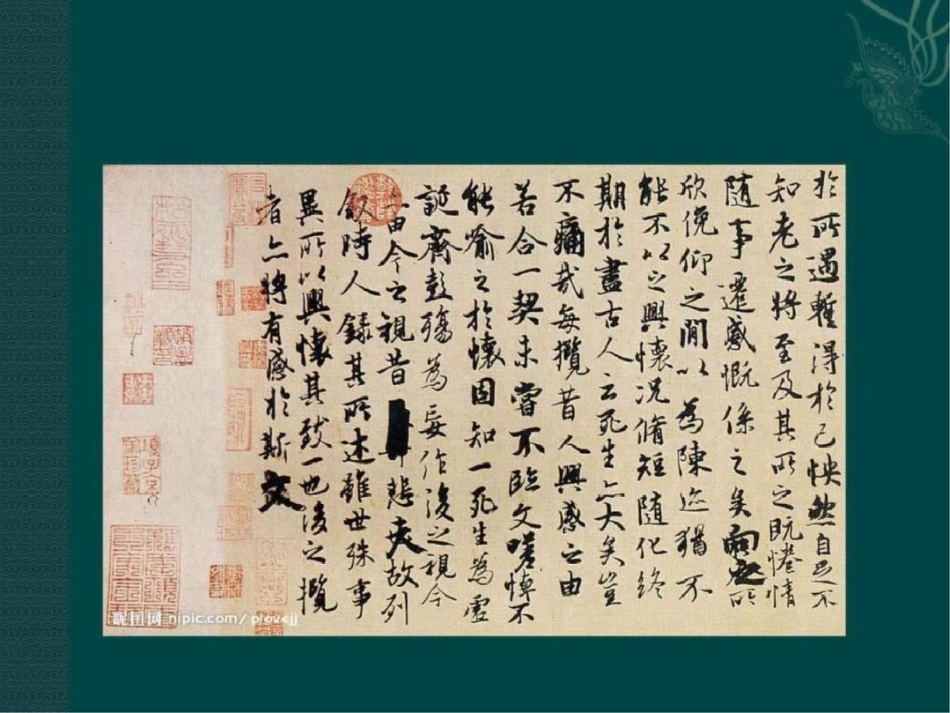 於所遇暫得於己怏然自足不
知老之將至及其所之既惓情
隨事遷感慨係之矣向之所
欣俛仰之閒以為陳迹猶不
能不以之興懷況脩短隨化終
期於盡古人云死生亦大矣豈
不痛哉每攬昔人興感之由
若合一契未嘗不臨文嗟悼不
能喻之於懷固知一死生為虛
誕齊彭殤為妄作後之視今
亦由今之視昔悲夫故列
敘時人錄其所述雖世殊事
異所以興懷其致一也後之攬
者亦將有感於斯文
昵图网 nipic.com/